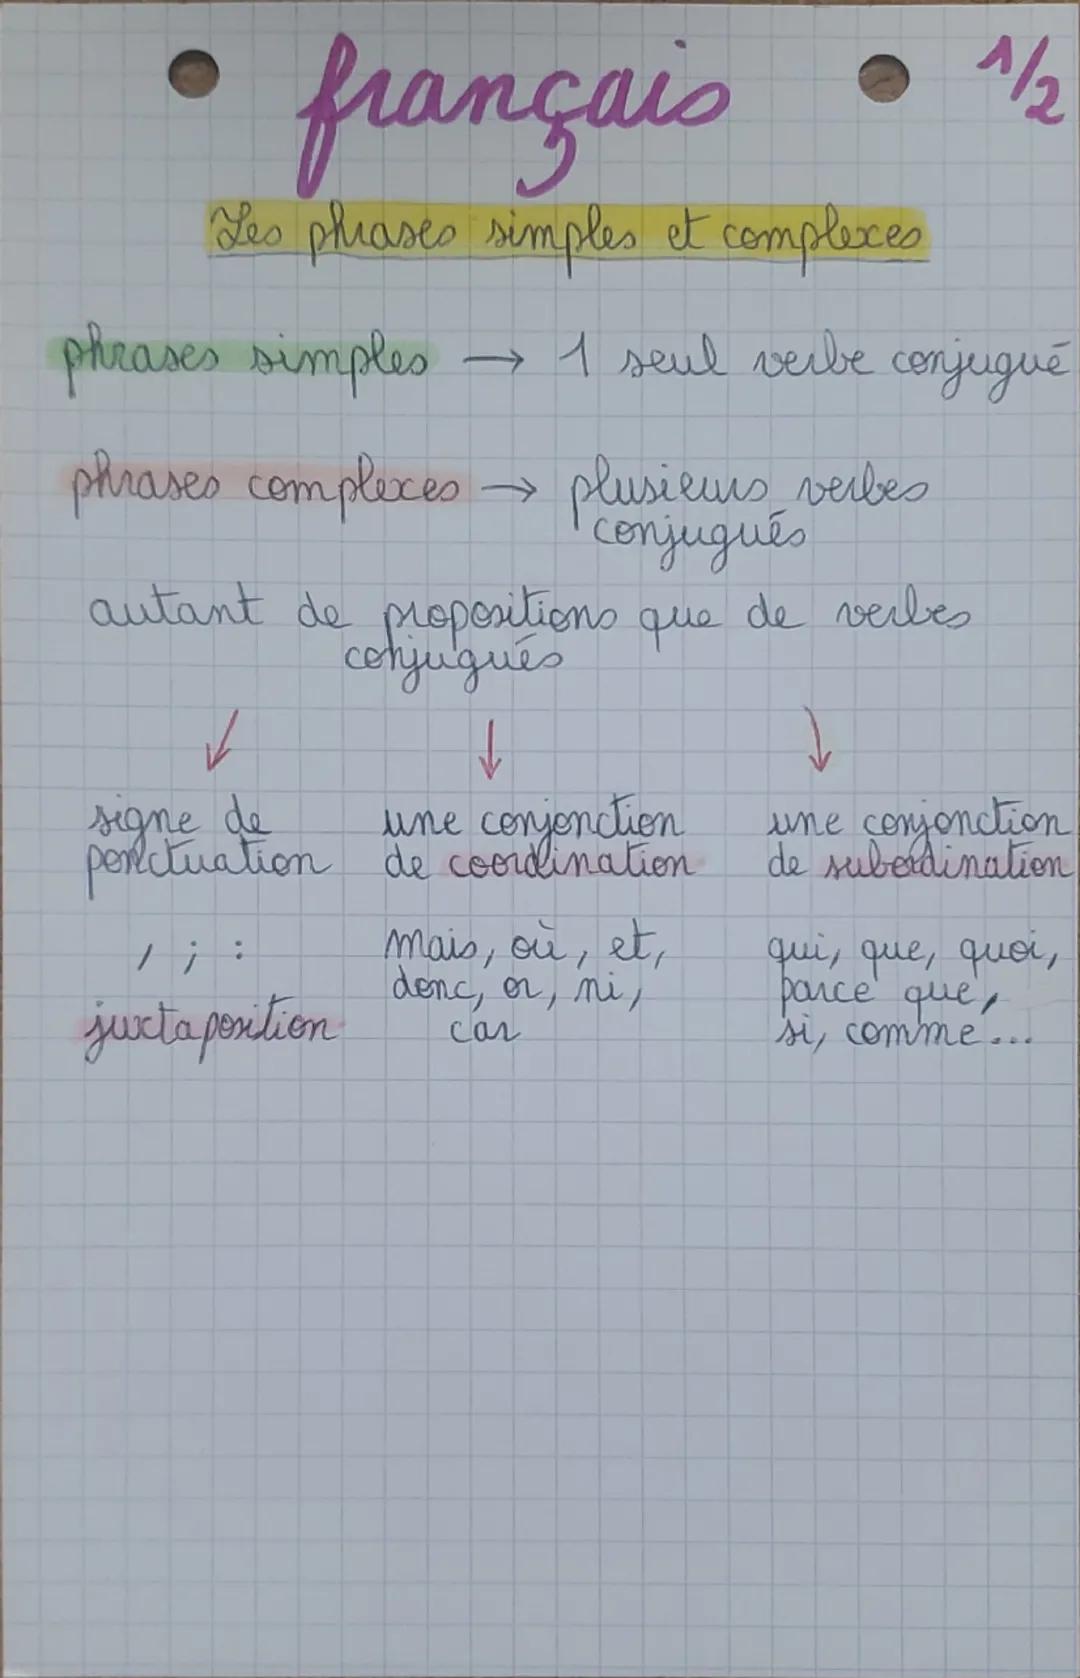 français
1/2
Les phrases simples et complexes
phrases simples → 1 seul verbe conjugué
phrases complexes → plusieurs verbes
conjugués
autant de propositions que de verbes
conjugués
↙ ↓ ↘
signe de
ponctuation
, ; :
juxtaposition
une conjonction
de coordination
mais, où, et,
donc, or, ni,
car
une conjonction
de subordination
qui, que, quoi,
parce que,
si, comme...